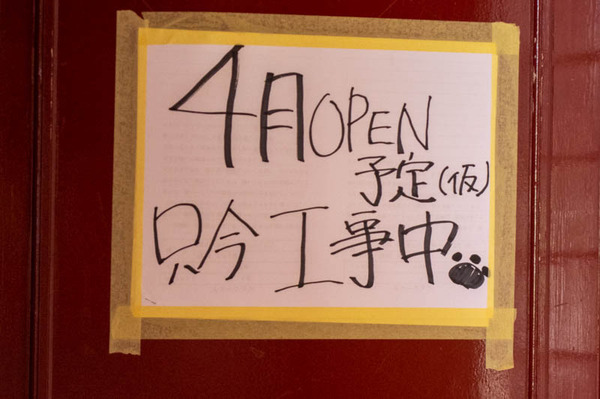 4月OPEN
予定(仮)
只今工事中